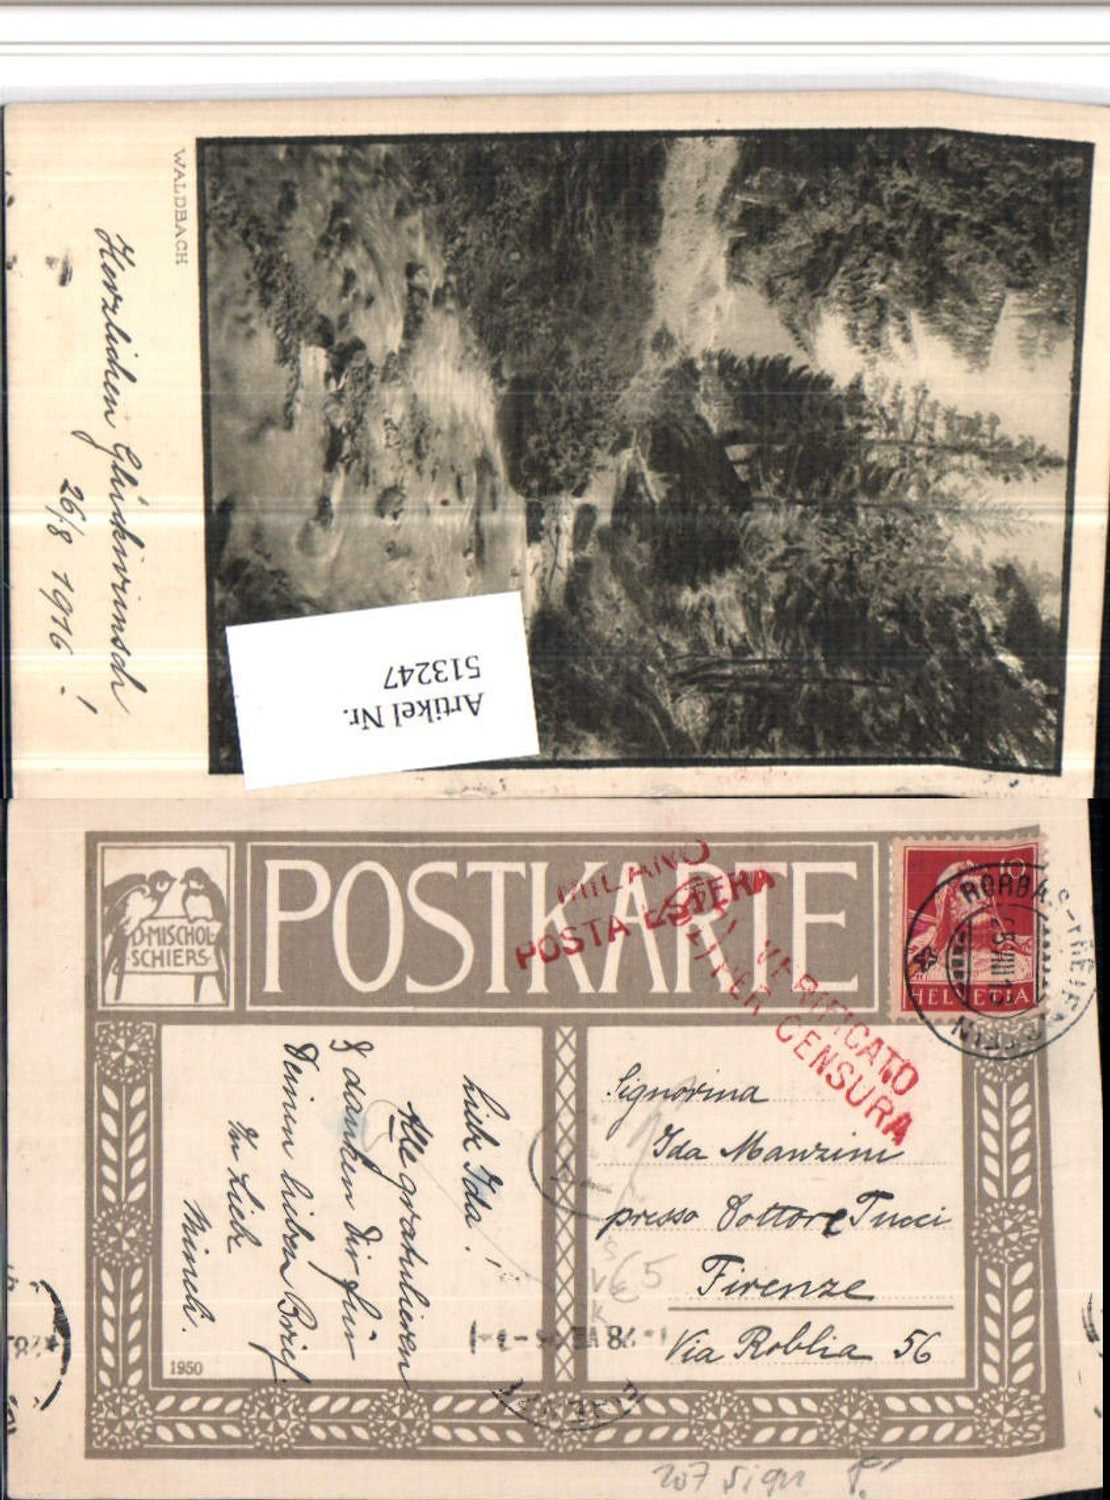 WALDBACH
Herzlichen Glückwunsch
26/8 1916 !
Artikel Nr.
513247
D·MISCHOL
SCHIERS
POSTKARTE
MILANO
POSTA ESTERA
VERIFICATO
PER CENSURA
HELVETIA
Liebe Ida !
Alle gratulieren
& danken Dir für
Deinen lieben Brief.
In Liebe
1950
Signorina
Ida Manzini
presso Dottore Tucci
Firenze
Via Robbia 56
207 Sign